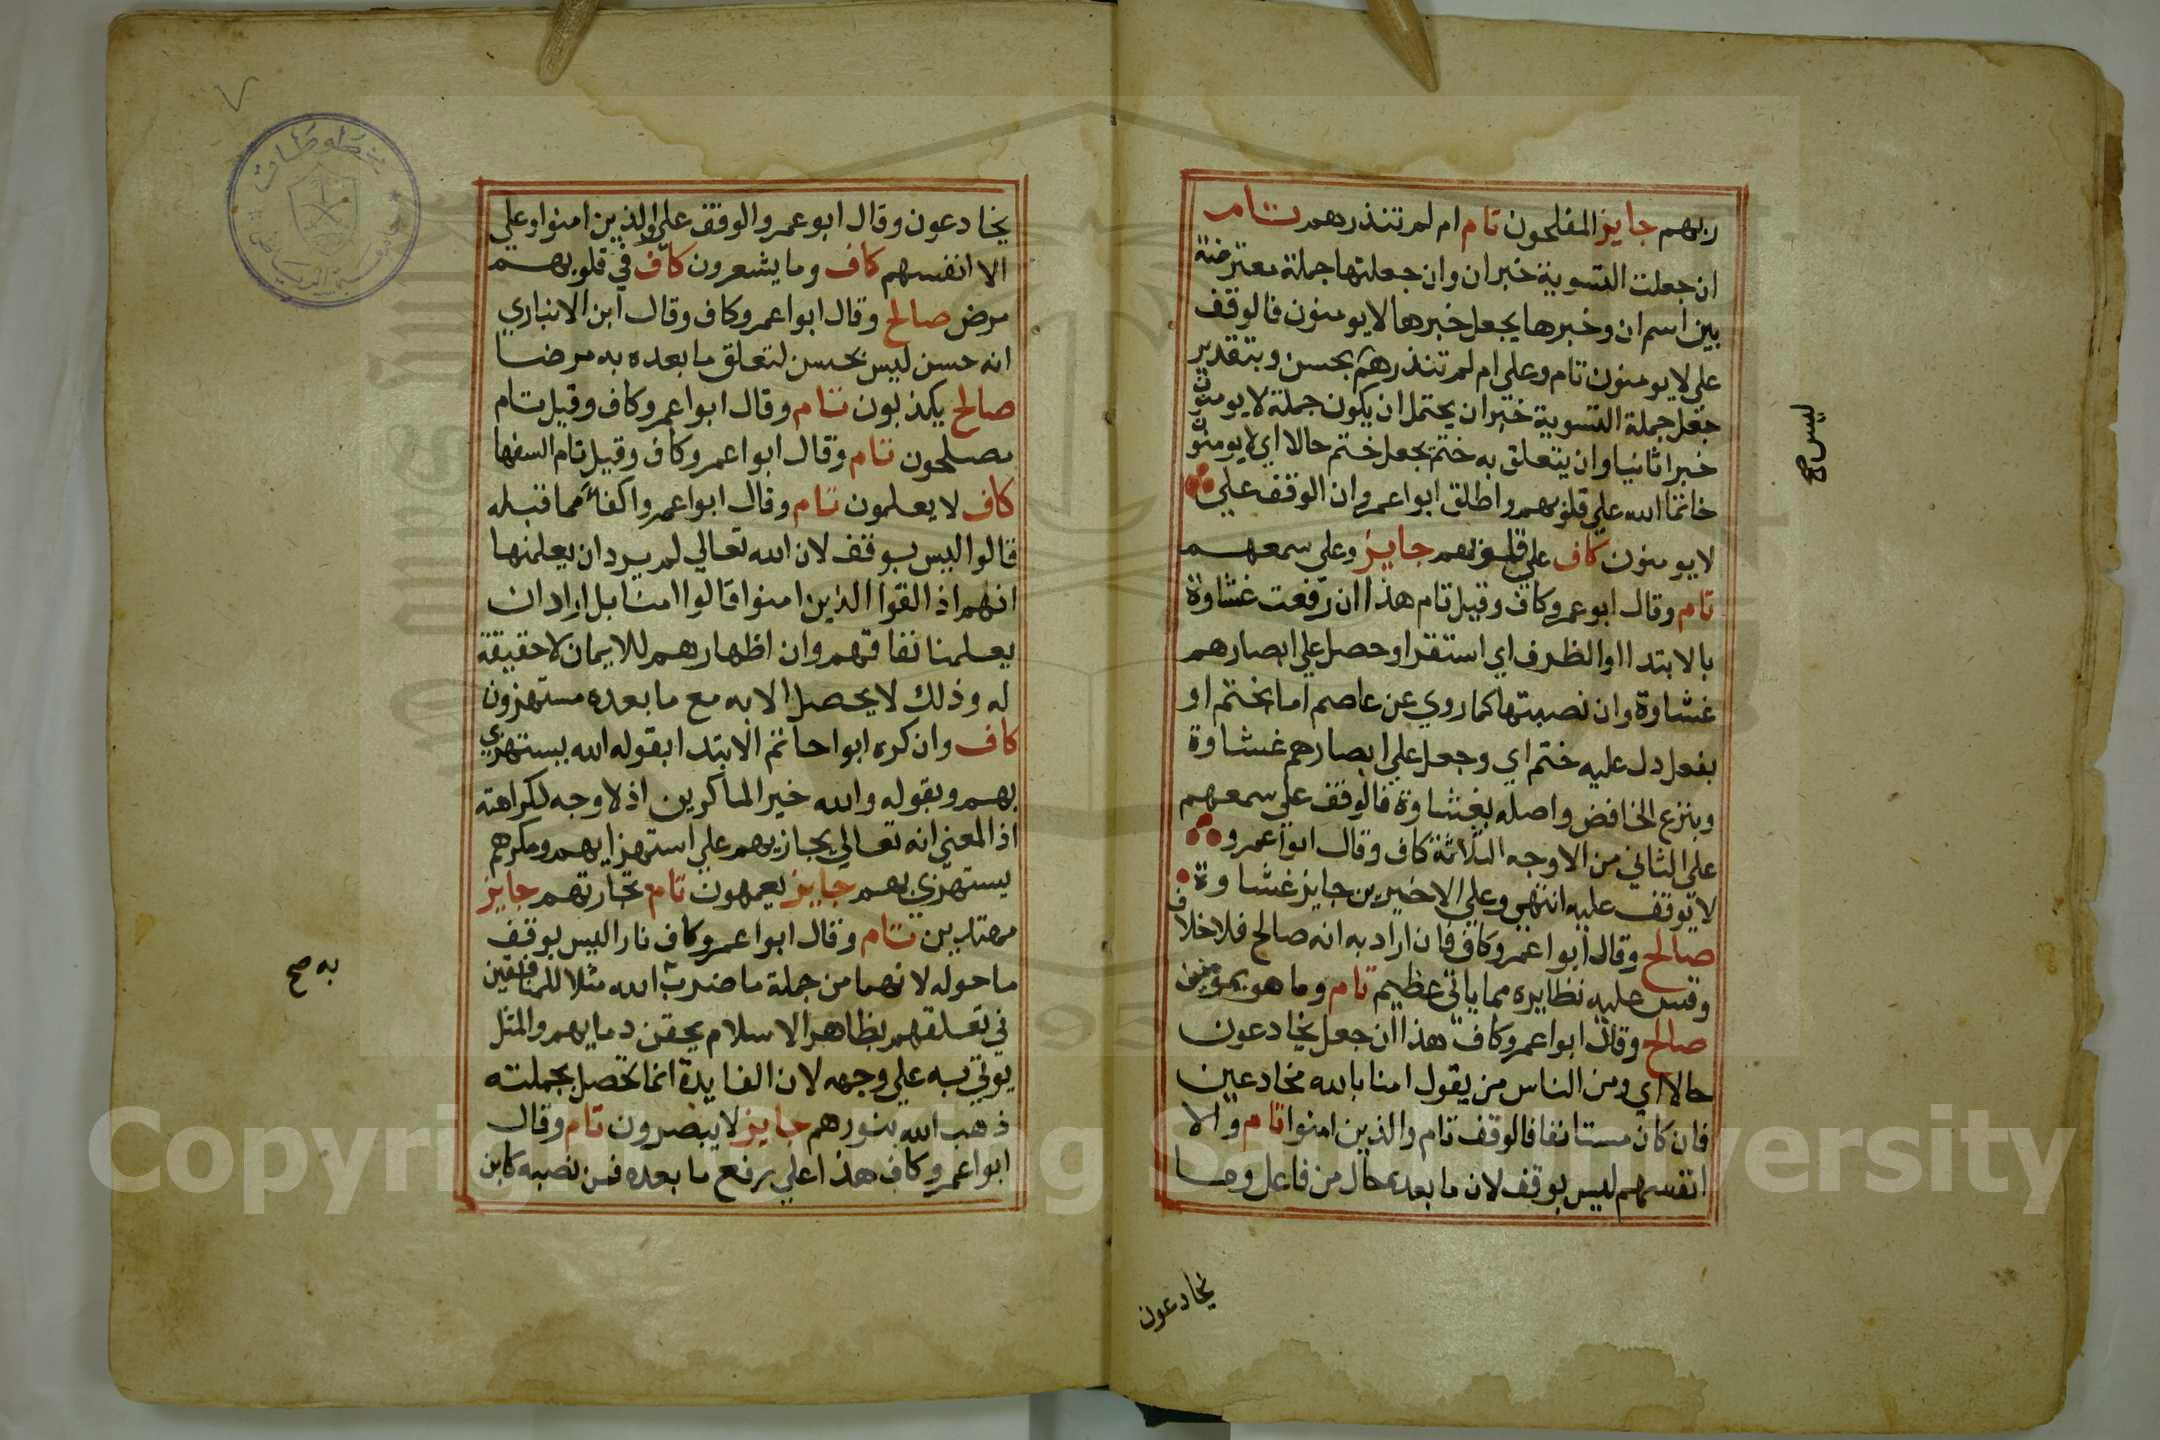 ربهم جايز المفلحون تام ام لم تنذرهم تام
ان جعلت التسوية خبر ان وان جعلتها جملة معترضة
بين اسم ان وخبرها يجعل خبرها لا يومنون فالوقف
علي لا يومنون تام وعلي ام لم تنذرهم بحسن وبتقدير
جعل جملة التسوية خبر ان يحتمل ان يكون جملة لا يومنون
خبرا ثانيا وان يتعلق به ختم بجعل ختم حالا اي لا يومنون
خاتما الله علي قلوبهم واطلق ابوا عمرو ان الوقف علي
لا يومنون كاف علي قلوبهم جايز وعلي سمعهم
تام وقال ابو عمرو كاف وقيل تام هذا ان رفعت غشاوة
بالابتدا او الظرف اي استقر او حصل علي ابصارهم
غشاوة وان نصبتها كما روي عن عاصم اما بختم او
بفعل دل عليه ختم اي وجعل علي ابصارهم غشاوة
وبنزع الخافض واصله بغشاوة فالوقف علي سمعهم
علي الثاني من الاوجه الثلاثة كاف وقال ابوا عمرو
لا يوقف عليه انتهي وعلي الاخيرين جايز غشاوة
صالح وقال ابوا عمرو كاف فان اراد به انه صالح فلا خلاف
وقس عليه نظايره مما ياتي عظيم تام وما هم بمومنين
صالح وقال ابوا عمرو كاف هذا ان جعل يخادعون
حالا اي ومن الناس من يقول امنا بالله مخادعين
فان كان مستانفا فالوقف تام والذين امنوا تام والا
انفسهم ليس بوقف لان ما بعده حال من فاعل وما
ليس صح
يخادعون
يخادعون وقال ابو عمرو الوقف علي والذين امنوا وعلي
الا انفسهم كاف وما يشعرون كاف في قلوبهم
مرض صالح وقال ابوا عمرو كاف وقال ابن الانباري
انه حسن ليس بحسن لتعلق ما بعده به مرضا
صالح يكذبون تام وقال ابوا عمرو كاف وقيل تام
مصلحون تام وقال ابوا عمرو كاف وقيل تام السفها
كاف لا يعلمون تام وقال ابوا عمرو اكفا مما قبله
قالوا ليس بوقف لان الله تعالي لم يرد ان يعلمنا
انهم اذا لقوا الذين امنوا قالوا امنا بل اراد ان
يعلمنا نفاقهم وان اظهارهم للايمان لا حقيقة
له وذلك لا يحصل الا به مع ما بعده مستهزون
كاف وان كره ابوا حاتم الابتدا بقوله الله يستهزي
بهم وبقوله والله خير الماكرين اذ لا وجه لكراهته
اذ المعني انه تعالي يجازيهم علي استهزايهم ومكرهم
يستهزي بهم جايز يعمهون تام تجارتهم جايز
مهتدين تام وقال ابوا عمرو كاف نارا ليس بوقف
ما حوله لانهما من جملة ما ضرب الله مثلا للمنافقين
في تعلقهم بظاهر الاسلام بحقن دمايهم والمثل
يوتي به علي وجهه لان الفايدة انما تحصل بجملته
ذهب الله بنورهم جايز لا يبصرون تام وقال
ابوا عمرو كاف هذا علي رفع ما بعده فمن نصبه كابن
به صح
٧
Copyright © King Saud University